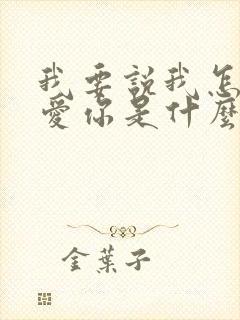 我要說我怎
愛你是什麼
金葉子